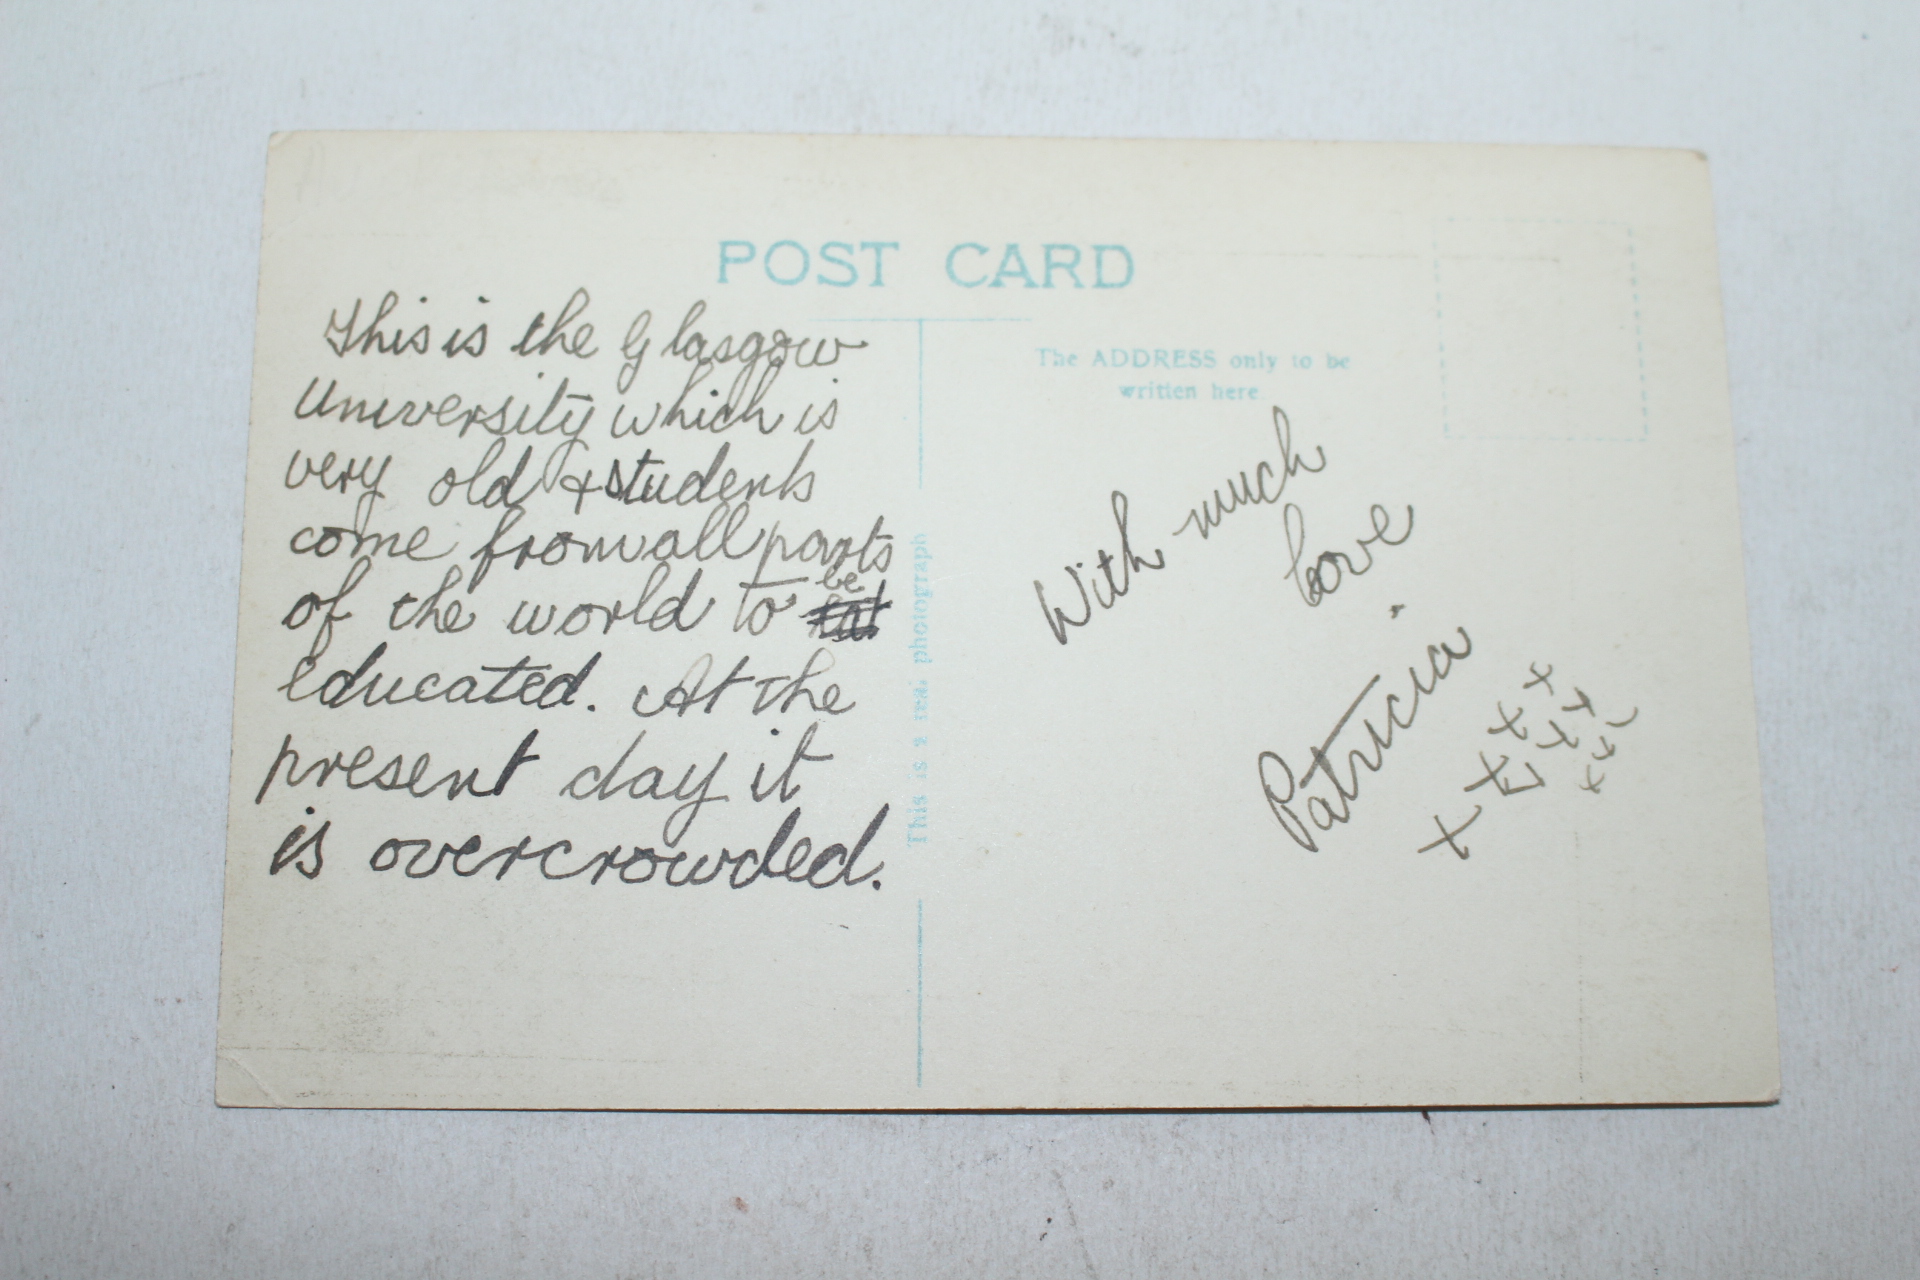 POST CARD
This is the Glasgow
University which is
very old + students
come from all parts
of the world to be
educated. At the
present day it
is overcrowded.
This is a real photograph
The ADDRESS only to be
written here
With much
love
Patricia